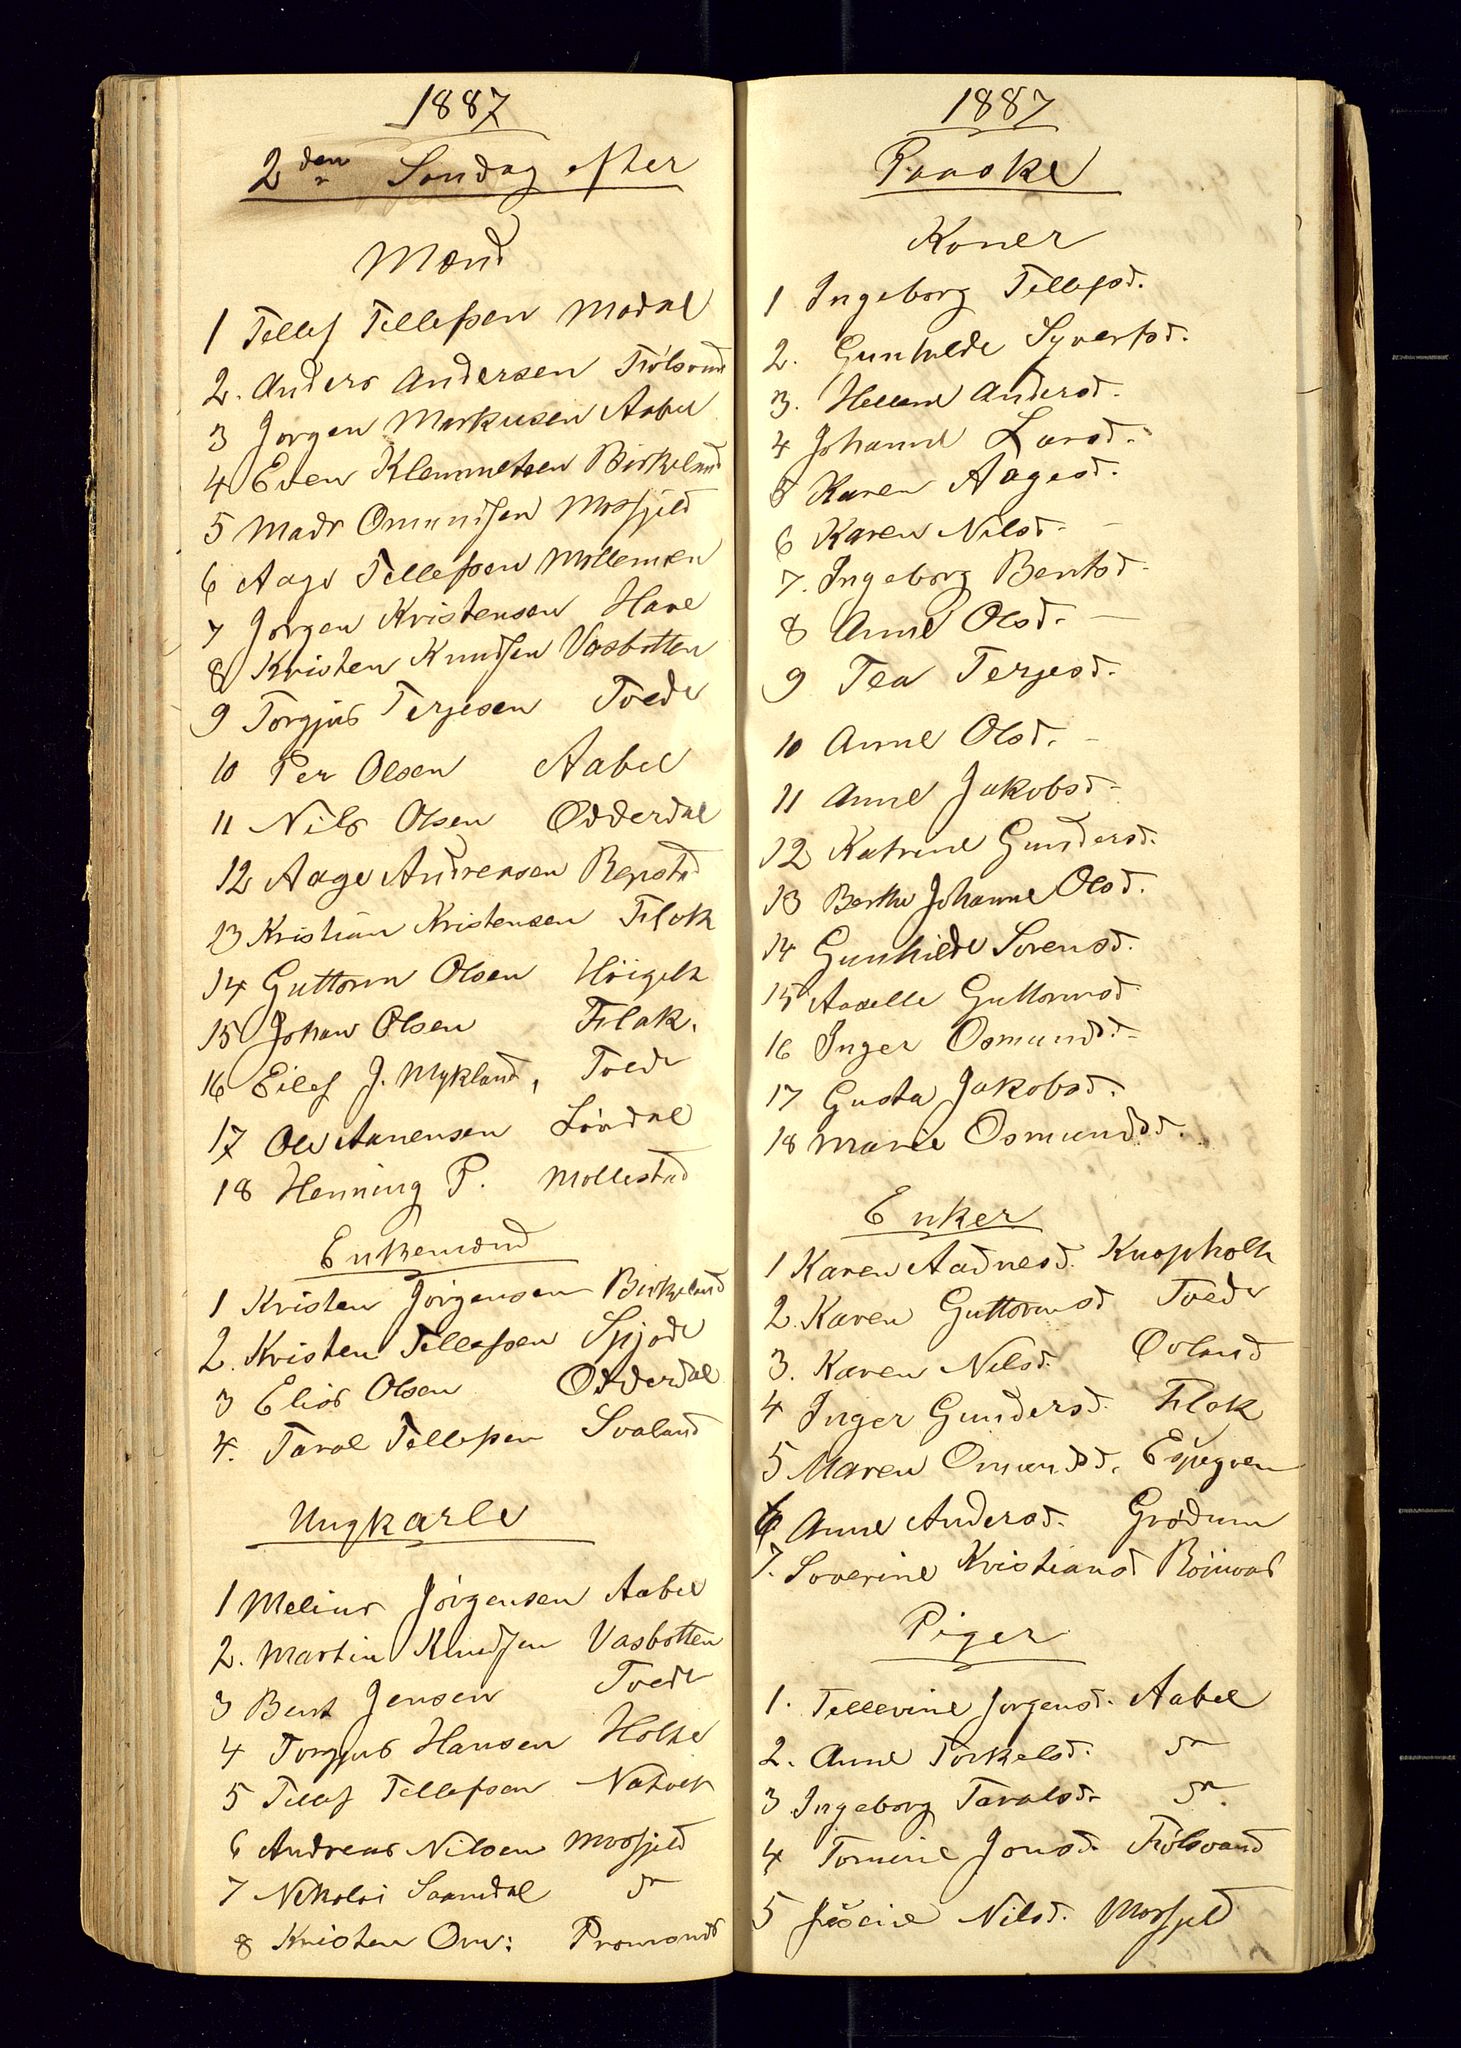 1887
2den Søndag efter
Mænd
1 Tellef Tellefsen Modal
2. Anders Andersen Fiölsvand
3 Jørgen Markusen Aabel
4 Even Klemmetsen Birkeland
5 Mads Omundsen Mosfjeld
6 Aage Tellefsen Mollemoen
7 Jørgen Kristensen Have
8 Kristen Knudsen Vasbotten
9 Torgjus Terjesen Tvede
10 Per Olsen Aabel
11 Nils Olsen Odderdal
12 Aage Andreasen Repstad
13 Kristian Kristensen Flak
14 Guttorm Olsen Höigelt
15 Johan Olsen Flak.
16 Eilef J. Mykland, Tvede
17 Ole Aanensen Lövdal
18 Henning P. Mollestad
Enkemænd
1 Kristen Jörgensen Birkeland
2. Kristen Tellefsen Spjode
3 Elias Olsen Odderdal
4. Tarol Tellefsen Svaland
Ungkarle
1 Melius Jörgensen Aabel
2. Martin Knudsen Vasbotten
3 Bent Jensen Tvede
4 Torgjus Hansen Holte
5 Tellef Tellefsen Natvek
6 Andreas Nilsen Mosfjeld
7 Nikolai Saamdal do
8 Kristen Om:
1887
Paaske
Koner
1 Ingeborg Tellefsd.
2. Gunhilde Syvertsd.
3. Hellene Andersd.
4 Johanne Larsd.
5 Karen Aagesd.
6 Karen Nilsd. —
7. Ingeborg Bentsd.
8 Anne Olsd. —
9 Tea Terjesd.
10 Anne Olsd. -
11 Anne Jakobsd.
12 Katrine Gundersd.
13 Berthe Johanne Olsd.
14 Gunhilde Sørensd.
15 Aaselle Guttormsd.
16 Inger Osmundsd.
17 Gusta Jakobsd.
18 Marie Osmundsd.
Enker
1 Karen Aadnesd. Knapholt
2. Karen Guttormsd Tvede
3. Karen Nilsd. Ovland
4 Inger Gundersd. Flak
5 Maren Omundsd. Espegren
6 Anne Andersd. Grødum
7. Soverine Kristiansd
Piger
1. Tellevine Jørgensd. Aabel
2. Anne Torkelsd. do
3 Ingeborg Taralsd. do.
4 Tomine Jonsd. Fiölsvand
5 Nilsd. Mosfjeld